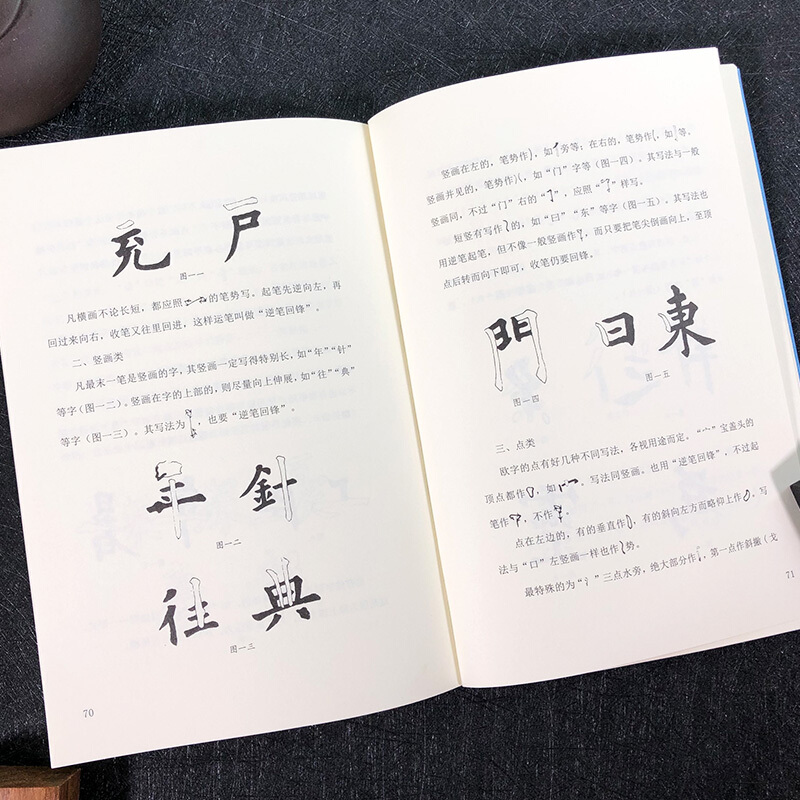 充 户
图一一
凡横画不论长短，都应照的笔势写。起笔先逆向左，再
回过来向右，收笔又往里回进，这样运笔叫做“逆笔回锋”。
二、竖画类
凡最末一笔是竖画的字，其竖画一定写得特别长，如“年”“针”
等字（图一二）。竖画在字的上部的，则尽量向上伸展，如“往”“典”
等字（图一三）。其写法为，也要“逆笔回锋”。
年 針
图一二
往 典
图一三
70
竖画在左的，笔势作，如旁等；在右的，笔势作，如等。
竖画并见的，笔势作，如“门”字等（图一四）。其写法与一般
竖画同，不过“门”右的“”，应照“”样写。
短竖有写作的，如“曰”“东”等字（图一五）。其写法也
用逆笔起笔，但不像一般竖画作，而只要把笔尖倒画向上，至顶
点后转而向下即可，收笔仍要回锋。
門
图一四
曰 東
图一五
三、点类
欧字的点有好几种不同写法，各视用途而定。“宀”宝盖头的
顶点都作，如，写法同竖画。也用“逆笔回锋”，不过起
笔作，不作。
点在左边的，有的垂直作，有的斜向左方而略仰上作。写
法与“口”左竖画一样也作势。
最特殊的为“氵”三点水旁，绝大部分作，第一点作斜撇（戈
71